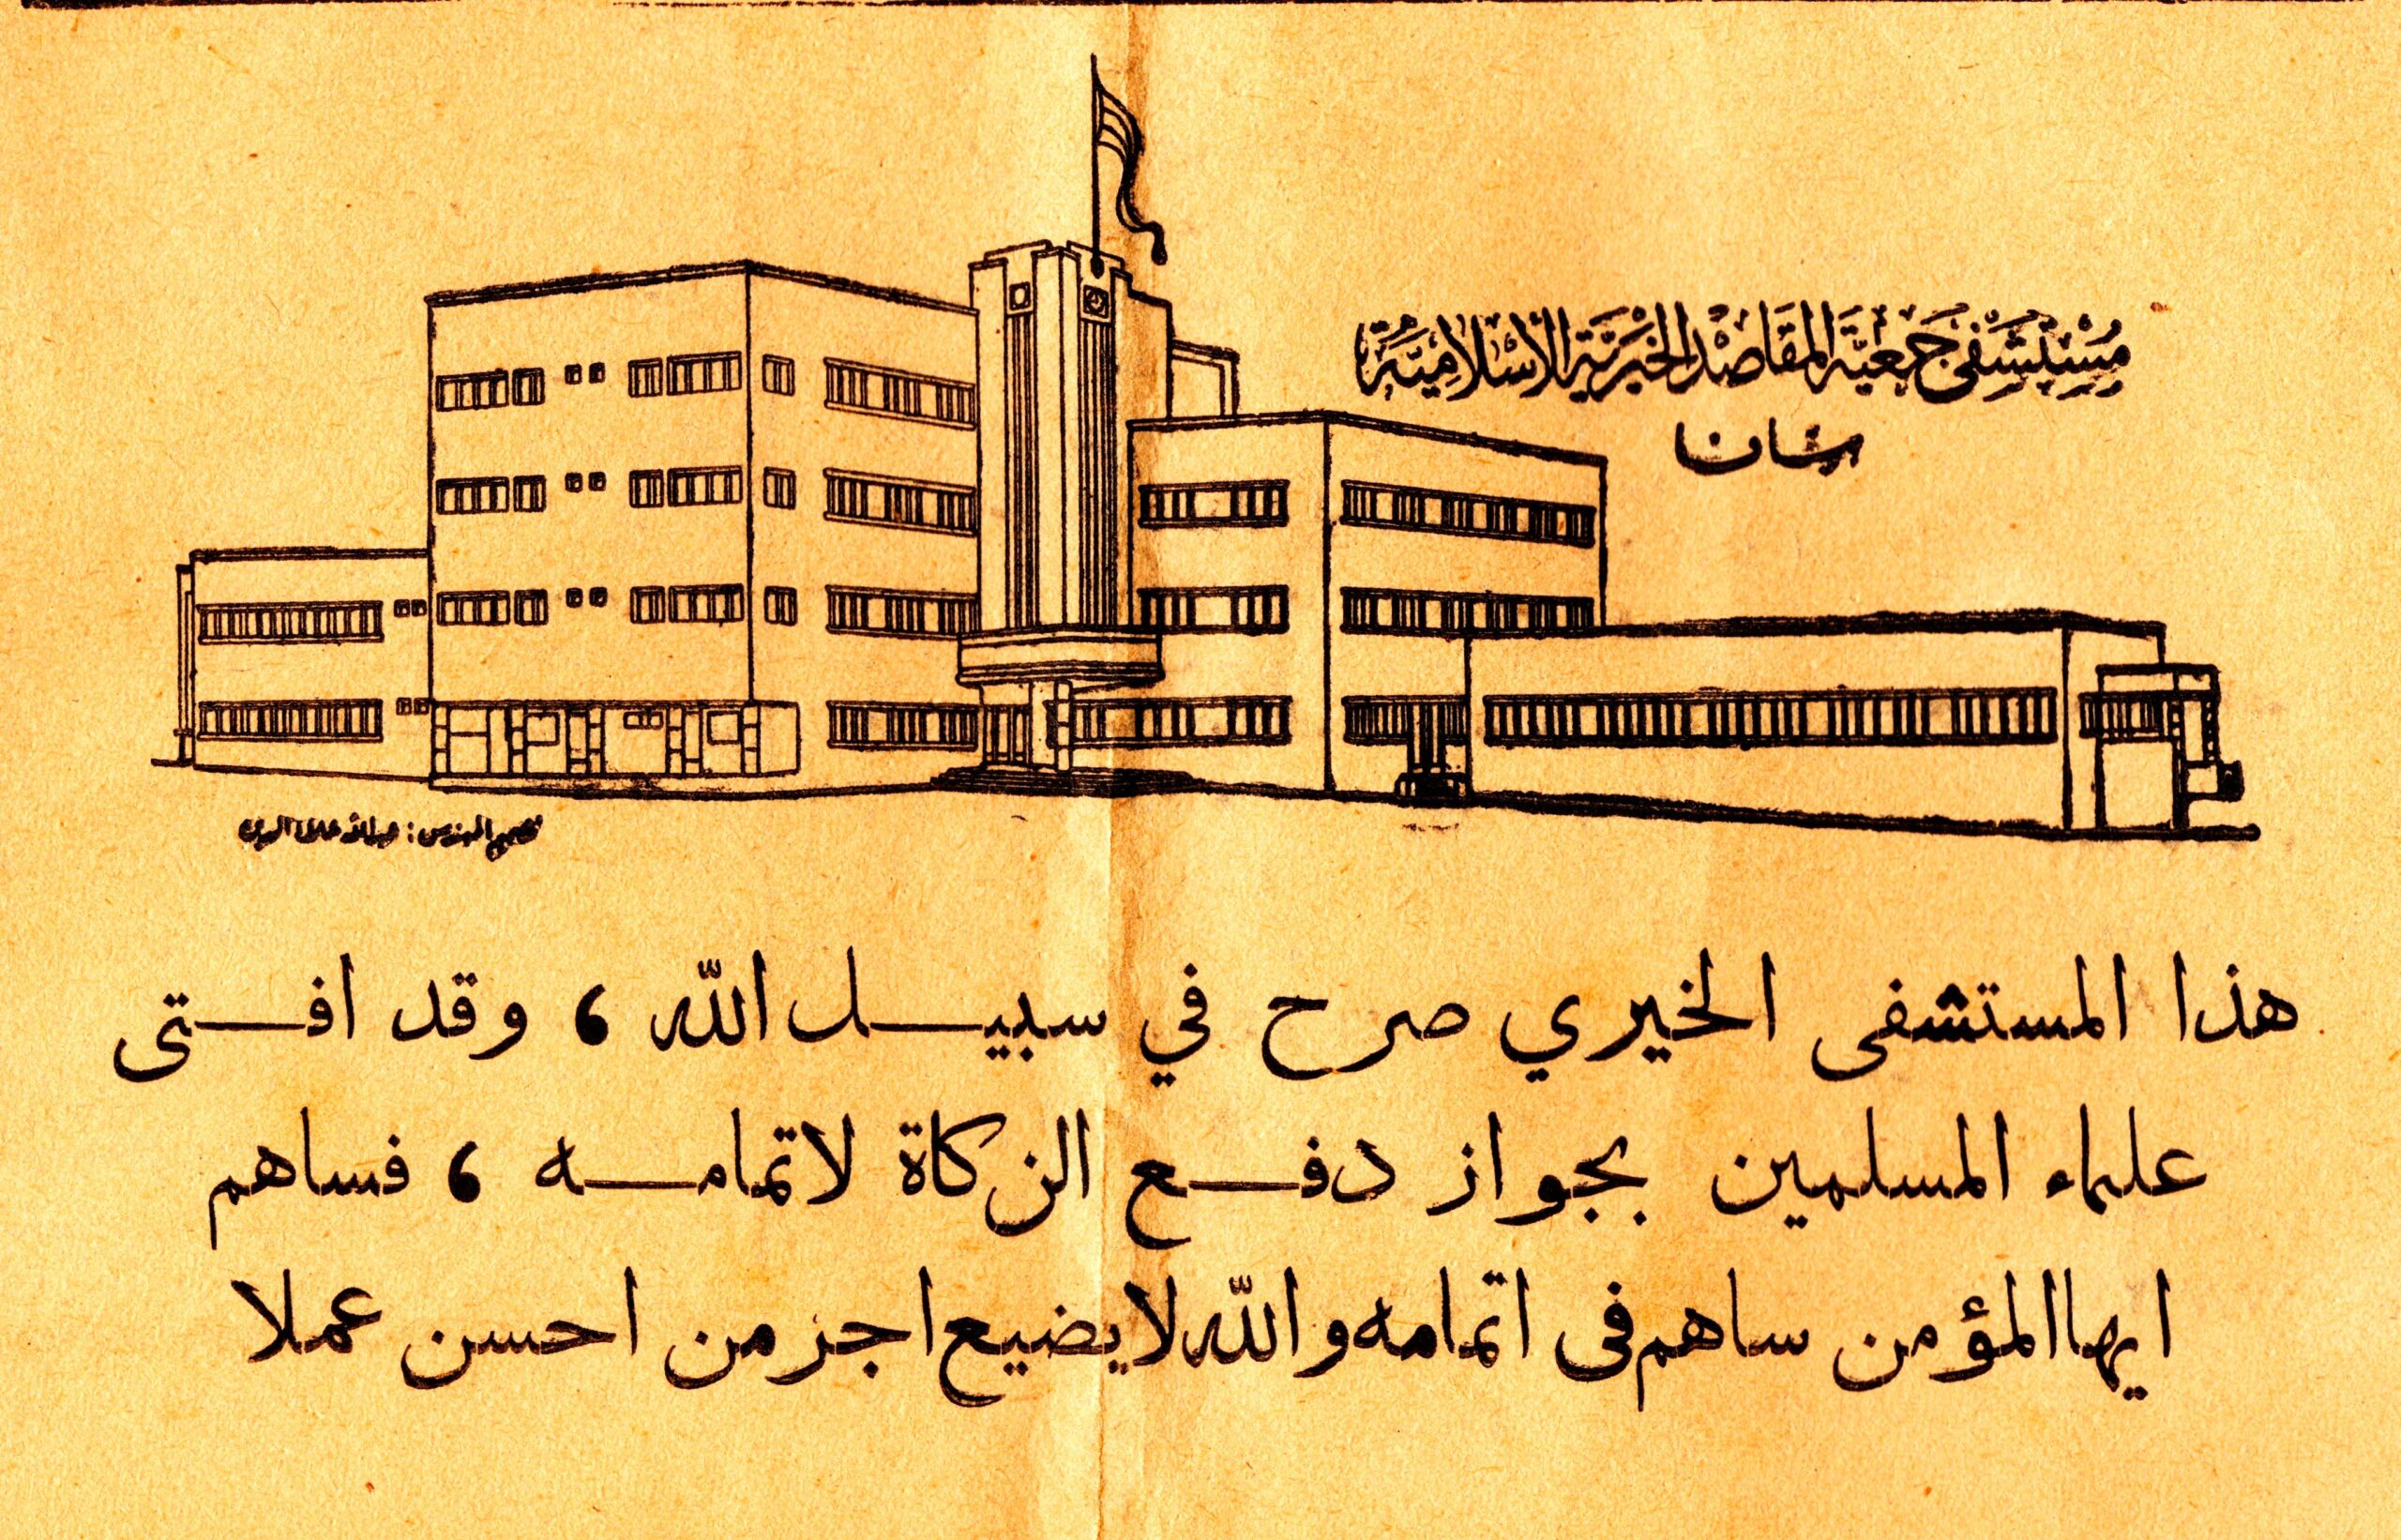 مُسْتَشْفى جَمْعِيَّة المَقَاصْد الخَيْرِيَّة الاسْلامِيَّة
تصميم المهندس: عبدالله
هذا المستشفى الخيري صرح في سبيل اللّه ، وقد افتى
علماء المسلمين بجواز دفع الزكاة لاتمامه ، فساهم
ايها المؤمن ساهم فى اتمامه واللّه لا يضيع اجر من احسن عملا